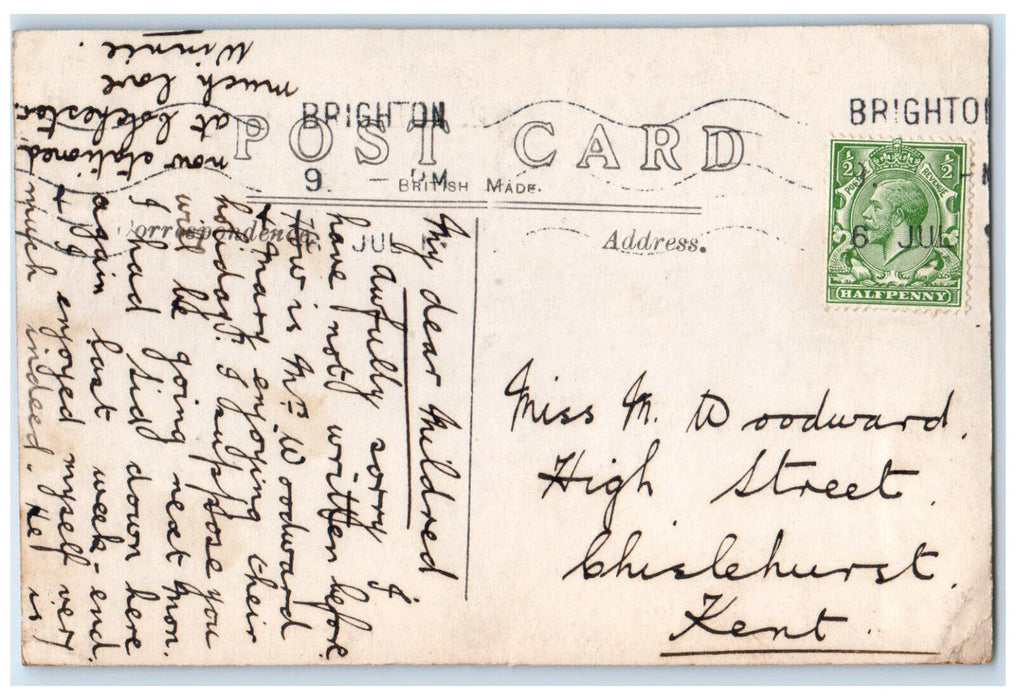 POST CARD
BRITISH MADE.
BRIGHTON
9. - PM
JUL
BRIGHTO
6 JUL
½ ½
POSTAGE REVENUE
HALFPENNY
Correspondence.
Address.
Miss M. Woodward.
High Street.
Chislehurst.
Kent.
My dear Mildred
Awfully sorry I
have not written before
How is Mrs Woodward
+ Mary enjoying their
holiday? I suppose you
will be going next Mon.
I had Sid down here
again last week-end.
+ enjoyed myself very
much indeed. He is
now stationed
at Colchester.
much love
Winnie.